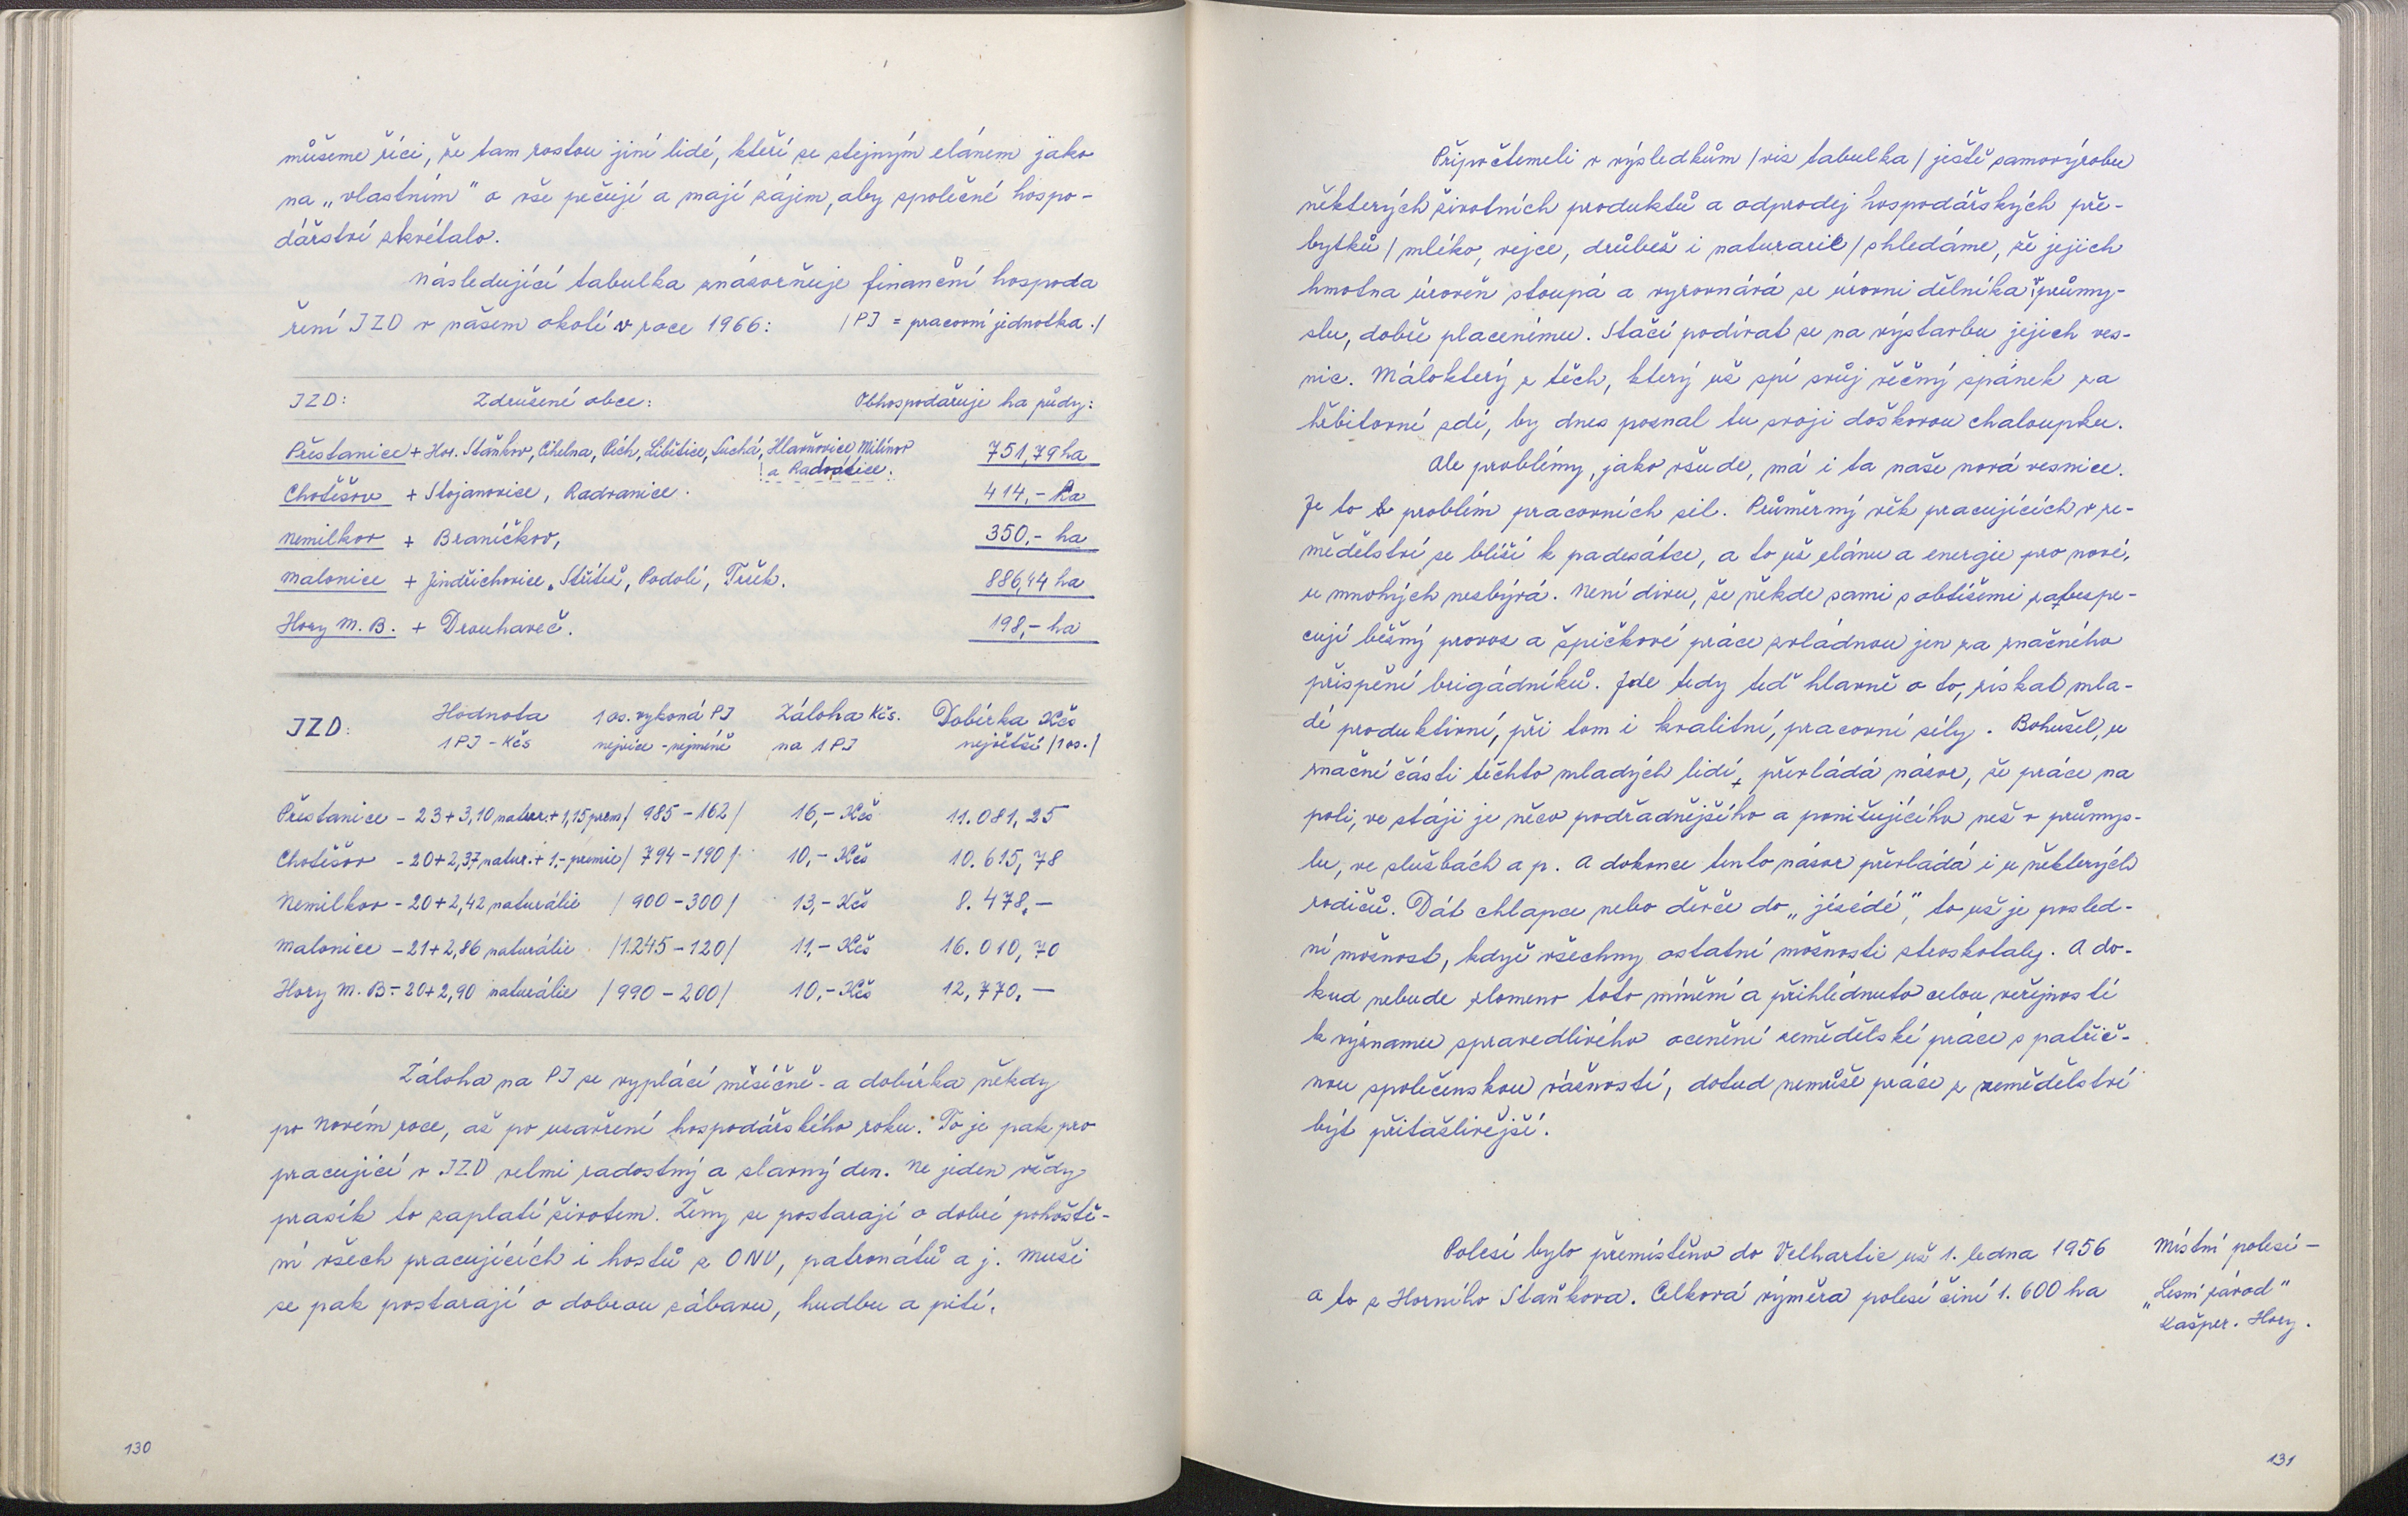 můžeme říci, že tam rostou jiní lidé, kteří se stejným elánem jako
na „vlastním" o vše pečují a mají zájem, aby společné hospo-
dářství zkvétalo.
Následující tabulka znázorňuje finanční hospoda
ření JZD v našem okolí v roce 1966: /PJ = pracovní jednotka./
JZD: Združené obce: Obhospodařuje ha půdy:
Přestanice + Hor. Staňkov, Cihelna, Pích, Libětice, Suchá, Hlavňovice, Milínov 751,79 ha
a Radostice.
Chotěšov + Stojanovice, Radvanice. 414,- ha
Nemilkov + Braníčkov, 350,- ha
Malonice + Jindřichovice, Střítež, Podolí, Tržek. 886,44 ha
Hory M. B. + Drouhaveč. 198,- ha
JZD: Hodnota 1 os. vykoná PJ Záloha Kčs. Dobírka Kčs
1 PJ - Kčs nejvíce - nejméně na 1 PJ největší /1 os./
Přestanice - 23 + 3,10 natur. + 1,15 prem / 985 - 162 / 16,- Kčs 11.081,25
Chotěšov - 20 + 2,37 natur. + 1.- premie / 794 - 190 / 10,- Kčs 10.615,78
Nemilkov - 20 + 2,42 naturálie / 900 - 300 / 13,- Kčs 8.478,-
Malonice - 21 + 2,86 naturálie / 1.245 - 120 / 11,- Kčs 16.010,70
Hory M. B. - 20 + 2,90 naturálie / 990 - 200 / 10,- Kčs 12,770,-
Záloha na PJ se vyplácí měsíčně - a dobírka někdy
po Novém roce, až po uzavření hospodářského roku. To je pak pro
pracující v JZD velmi radostný a slavný den. Ne jeden vždy
prasík to zaplatí životem. Ženy se postarají o dobré pohoště-
ní všech pracujících i hostů z ONV, patronátů a j. Muži
se pak postarají o dobrou zábavu, hudbu a pití.
130
Připočtemeli v výsledkům /viz tabulka/ ještě samovýrobu
některých životních produktů a odprodej hospodářských pře-
bytků /mléko, vejce, drůbež i naturarie/ shledáme, že jejich
hmotna úroveň stoupá a vyrovnává se úrovni dělníka v průmy-
slu, dobře placenímu. Stačí podívat se na výstavbu jejich ves-
nic. Málokterý z těch, který už spí svůj věčný spánek za
hřbitovní zdí, by dnes poznal tu svoji doškovou chaloupku.
Ale problémy, jako všude, má i ta naše nová vesnice.
Je to problém pracovních sil. Průměrný věk pracujících v ze-
mědělství se blíží k padesátce, a to už elánu a energie pro nové,
u mnohých nezbývá. Není divu, že někde sami s obtížemi zabespe-
cují běžný provoz a špičkové práce zvládnou jen za značného
přispění brigádníků. Jde tedy teď hlavně o to, získat mla-
dé produktivní, při tom i kvalitní, pracovní síly. Bohužel, u
značné části těchto mladých lidí, převládá názor, že práce na
poli, ve stáji je něco podřadnějšího a ponižujícího než v průmys-
lu, ve službách a p. A dokonce tento názor převládá i u některých
rodičů. Dát chlapce nebo děvče do „jézédé", to už je posled-
ní možnost, když všechny ostatní možnosti ztroskotaly. A do-
kud nebude zlomeno toto mínění a přihlédnuto celou veřejností
k významu spravedlivého ocenění zemědělské práce s patřič-
nou společenskou vážností, dotud nemůže práce z zemědělství
být přitažlivější.
Polesí bylo přemístěno do Velhartic už 1. ledna 1956
a to z Horního Staňkova. Celková výměra polesí činí 1.600 ha
Místní polesí -
„Lesní závod"
Kašper. Hory.
131